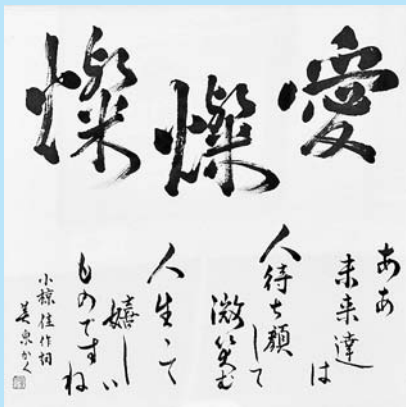 愛燦燦
ああ
未来達は
人待ち顔して
微笑む
人生って
嬉しい
ものですね
小椋佳作詞
美泉かく